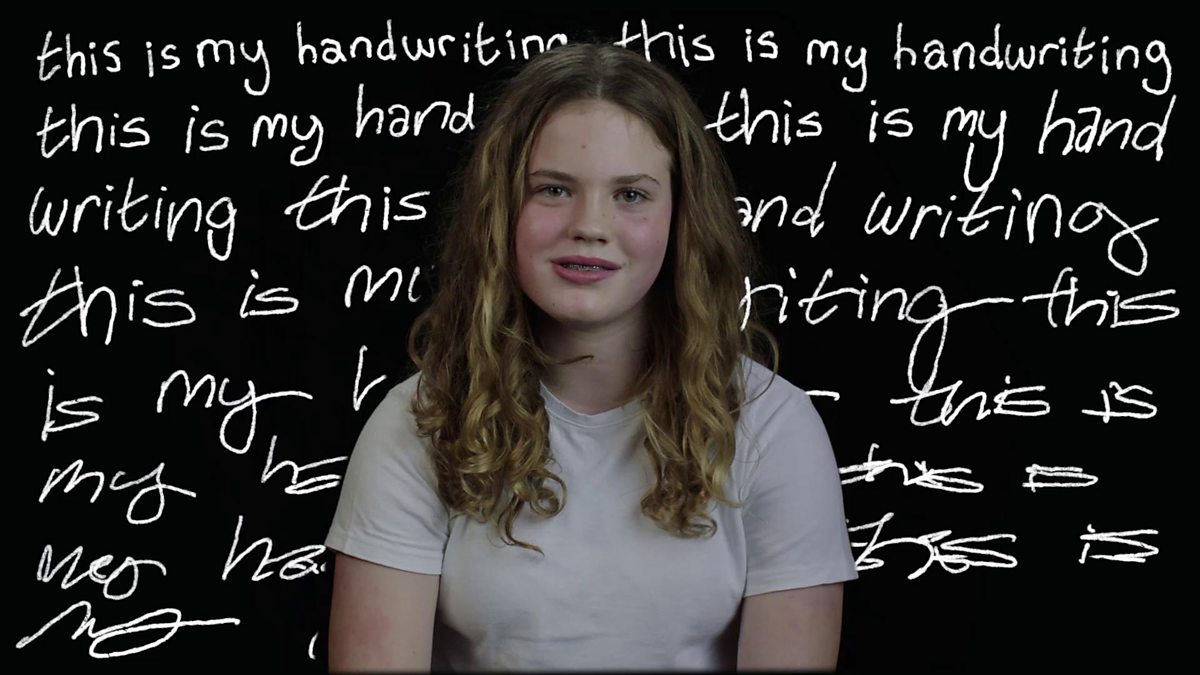 this is my handwriting this is my handwriting
this is my hand this is my hand
writing this and writing
this is my riting this
is my this is
my ha this is
ha is